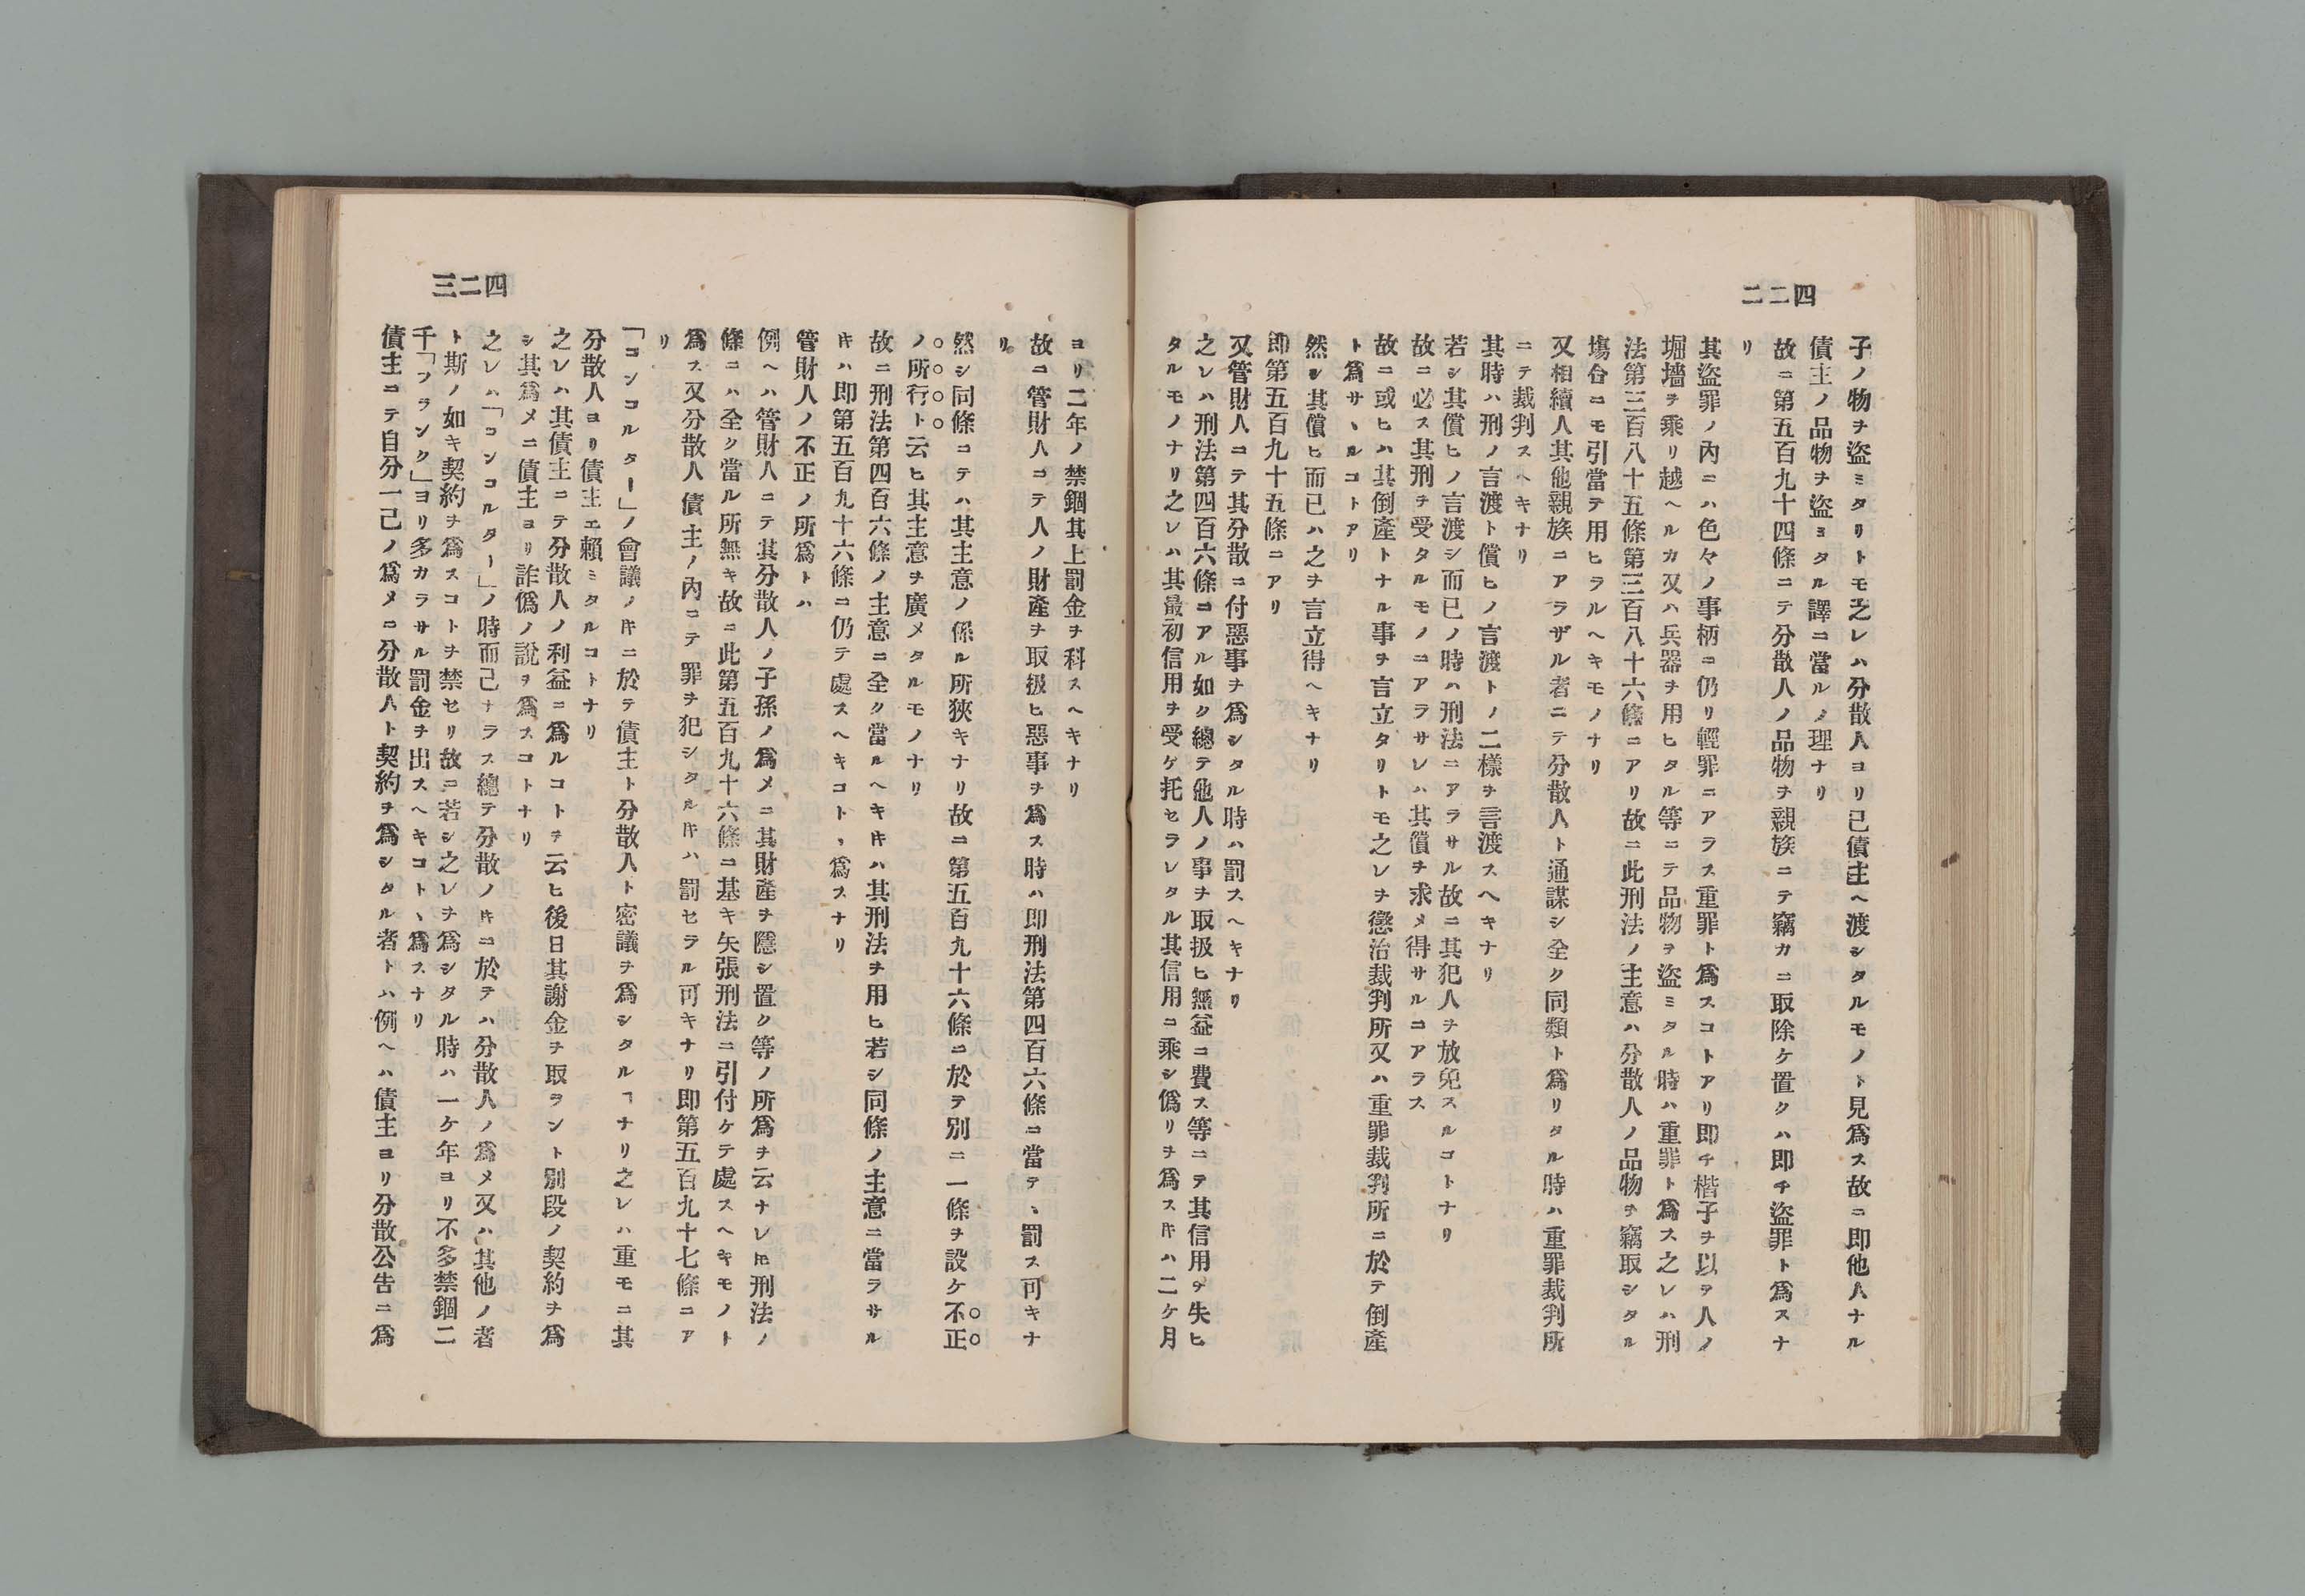 四二二
子ノ物ヲ盜ミタリトモ之レハ分散人ヨリ已債主ヘ渡シタルモノト見爲ス故ニ即他人ナル
債主ノ品物ヲ盜ヨタル譯ニ當ルノ理ナリ
故ニ第五百九十四條ニテ分散人ノ品物ヲ親族ニテ竊カニ取除ケ置クハ即チ盜罪ト爲スナ
リ
其盜罪ノ內ニハ色々ノ事柄ニ仍リ輕罪ニアラス重罪ト爲スコトアリ即チ楷子ヲ以テ人ノ
堀墻ヲ乘リ越ヘルカ又ハ兵器ヲ用ヒタル等ニテ品物ヲ盜ミタル時ハ重罪ト爲ス之レハ刑
法第三百八十五條第三百八十六條ニアリ故ニ此刑法ノ主意ハ分散人ノ品物ヲ竊取シタル
塲合ニモ引當テ用ヒラルヘキモノナリ
又相續人其他親族ニアラザル者ニテ分散人ト通謀シ全ク同類ト爲リタル時ハ重罪裁判所
ニテ裁判スヘキナリ
其時ハ刑ノ言渡ト償ヒノ言渡トノ二樣ヲ言渡スヘキナリ
若シ其償ヒノ言渡シ而已ノ時ハ刑法ニアラサル故ニ其犯人ヲ放免スルコトナリ
故ニ必ス其刑ヲ受タルモノニアラサレハ其償ヲ求メ得サルコアラス
故ニ或ヒハ其倒產トナル事ヲ言立タリトモ之レヲ懲治裁判所又ハ重罪裁判所ニ於テ倒產
ト爲サヽルコトアリ
然シ其償ヒ而已ハ之ヲ言立得ヘキナリ
即第五百九十五條ニアリ
又管財人ニテ其分散ニ付惡事ヲ爲シタル時ハ罰スヘキナリ
之レハ刑法第四百六條ニアル如ク總テ他人ノ事ヲ取扱ヒ無益ニ費ス等ニテ其信用ヲ失ヒ
タルモノナリ之レハ其最初信用ヲ受ケ托セラレタル其信用ニ乘シ僞リヲ爲スキハ二ケ月
四二三
ヨリ二年ノ禁錮其上罰金ヲ科スヘキナリ
故ニ管財人ニテ人ノ財產ヲ取扱ヒ惡事ヲ爲ス時ハ即刑法第四百六條ニ當テヽ罰ス可キナ
リ
然シ同條ニテハ其主意ノ係ル所狹キナリ故ニ第五百九十六條ニ於テ別ニ一條ヲ設ケ不正
ノ所行ト云ヒ其主意ヲ廣メタルモノナリ
故ニ刑法第四百六條ノ主意ニ全ク當ルヘキ𪜈ハ其刑法ヲ用ヒ若シ同條ノ主意ニ當ラサル
𪜈ハ即第五百九十六條ニ仍テ處スヘキコトヽ爲スナリ
管財人ノ不正ノ所爲トハ
例ヘハ管財人ニテ其分散人ノ子孫ノ爲メニ其財產ヲ隱シ置ク等ノ所爲ヲ云ナレ𪜈刑法ノ
條ニハ全ク當ル所無キ故ニ此第五百九十六條ニ基キ矢張刑法ニ引付ケテ處スヘキモノト
爲ス又分散人債主ノ內ニテ罪ヲ犯シタル𪜈ハ罰セラル可キナリ即第五百九十七條ニア
リ
「コンコルター」ノ會議ノ𪜈ニ於テ債主ト分散人ト密議ヲ爲シタルヿナリ之レハ重モニ其
分散人ヨリ債主エ賴ミタルコトナリ
之レハ其債主ニテ分散人ノ利益ニ爲ルコトヲ云ヒ後日其謝金ヲ取ラント別段ノ契約ヲ爲
シ其爲メニ債主ヨリ詐僞ノ說ヲ爲スコトナリ
之レハ「コンコルター」ノ時而己ナラス總テ分散ノ𪜈ニ於テハ分散人ノ爲メ又ハ其他ノ者
ト斯ノ如キ契約ヲ爲スコトヲ禁セリ故ニ若シ之レヲ爲シタル時ハ一ケ年ヨリ不多禁錮二
千「フランク」ヨリ多カラサル罰金ヲ出スヘキコトヽ爲スナリ
債主ニテ自分一己ノ爲メニ分散人ト契約ヲ爲シタル者トハ例ヘハ債主ヨリ分散公告ニ爲